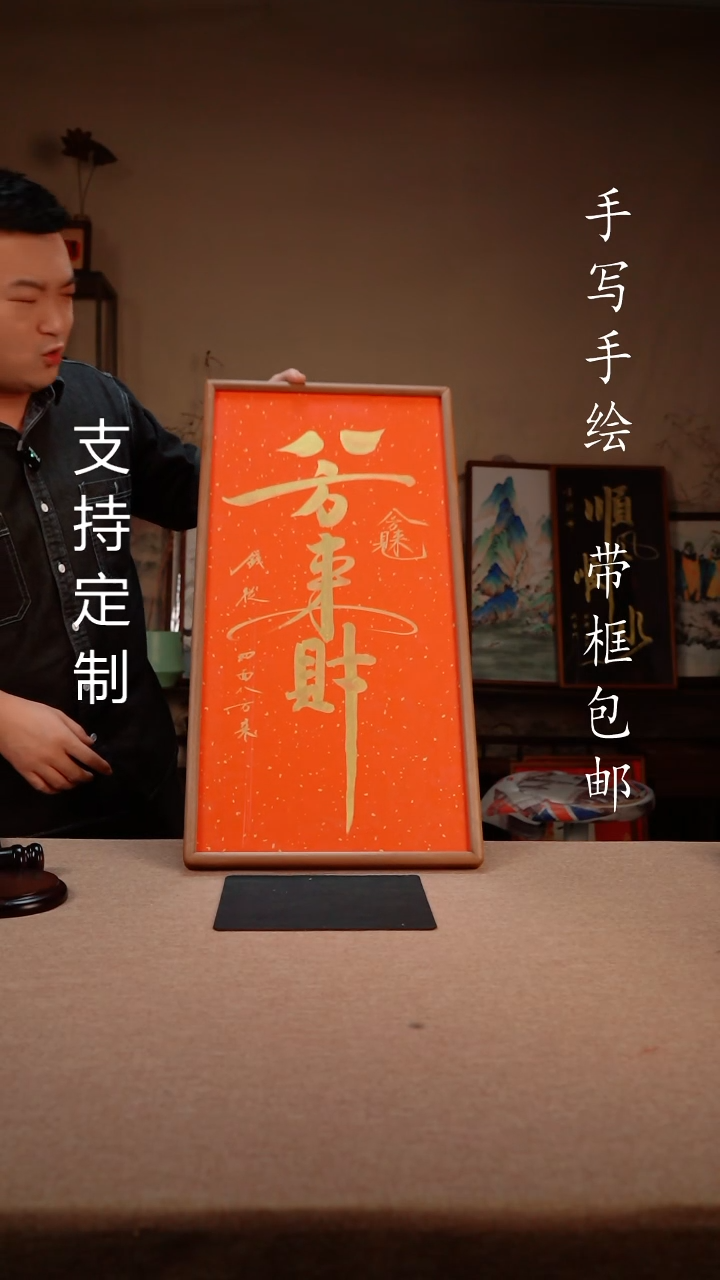 手写手绘 带框包邮
支持定制
八方来財
錢從
四面八方来
順風